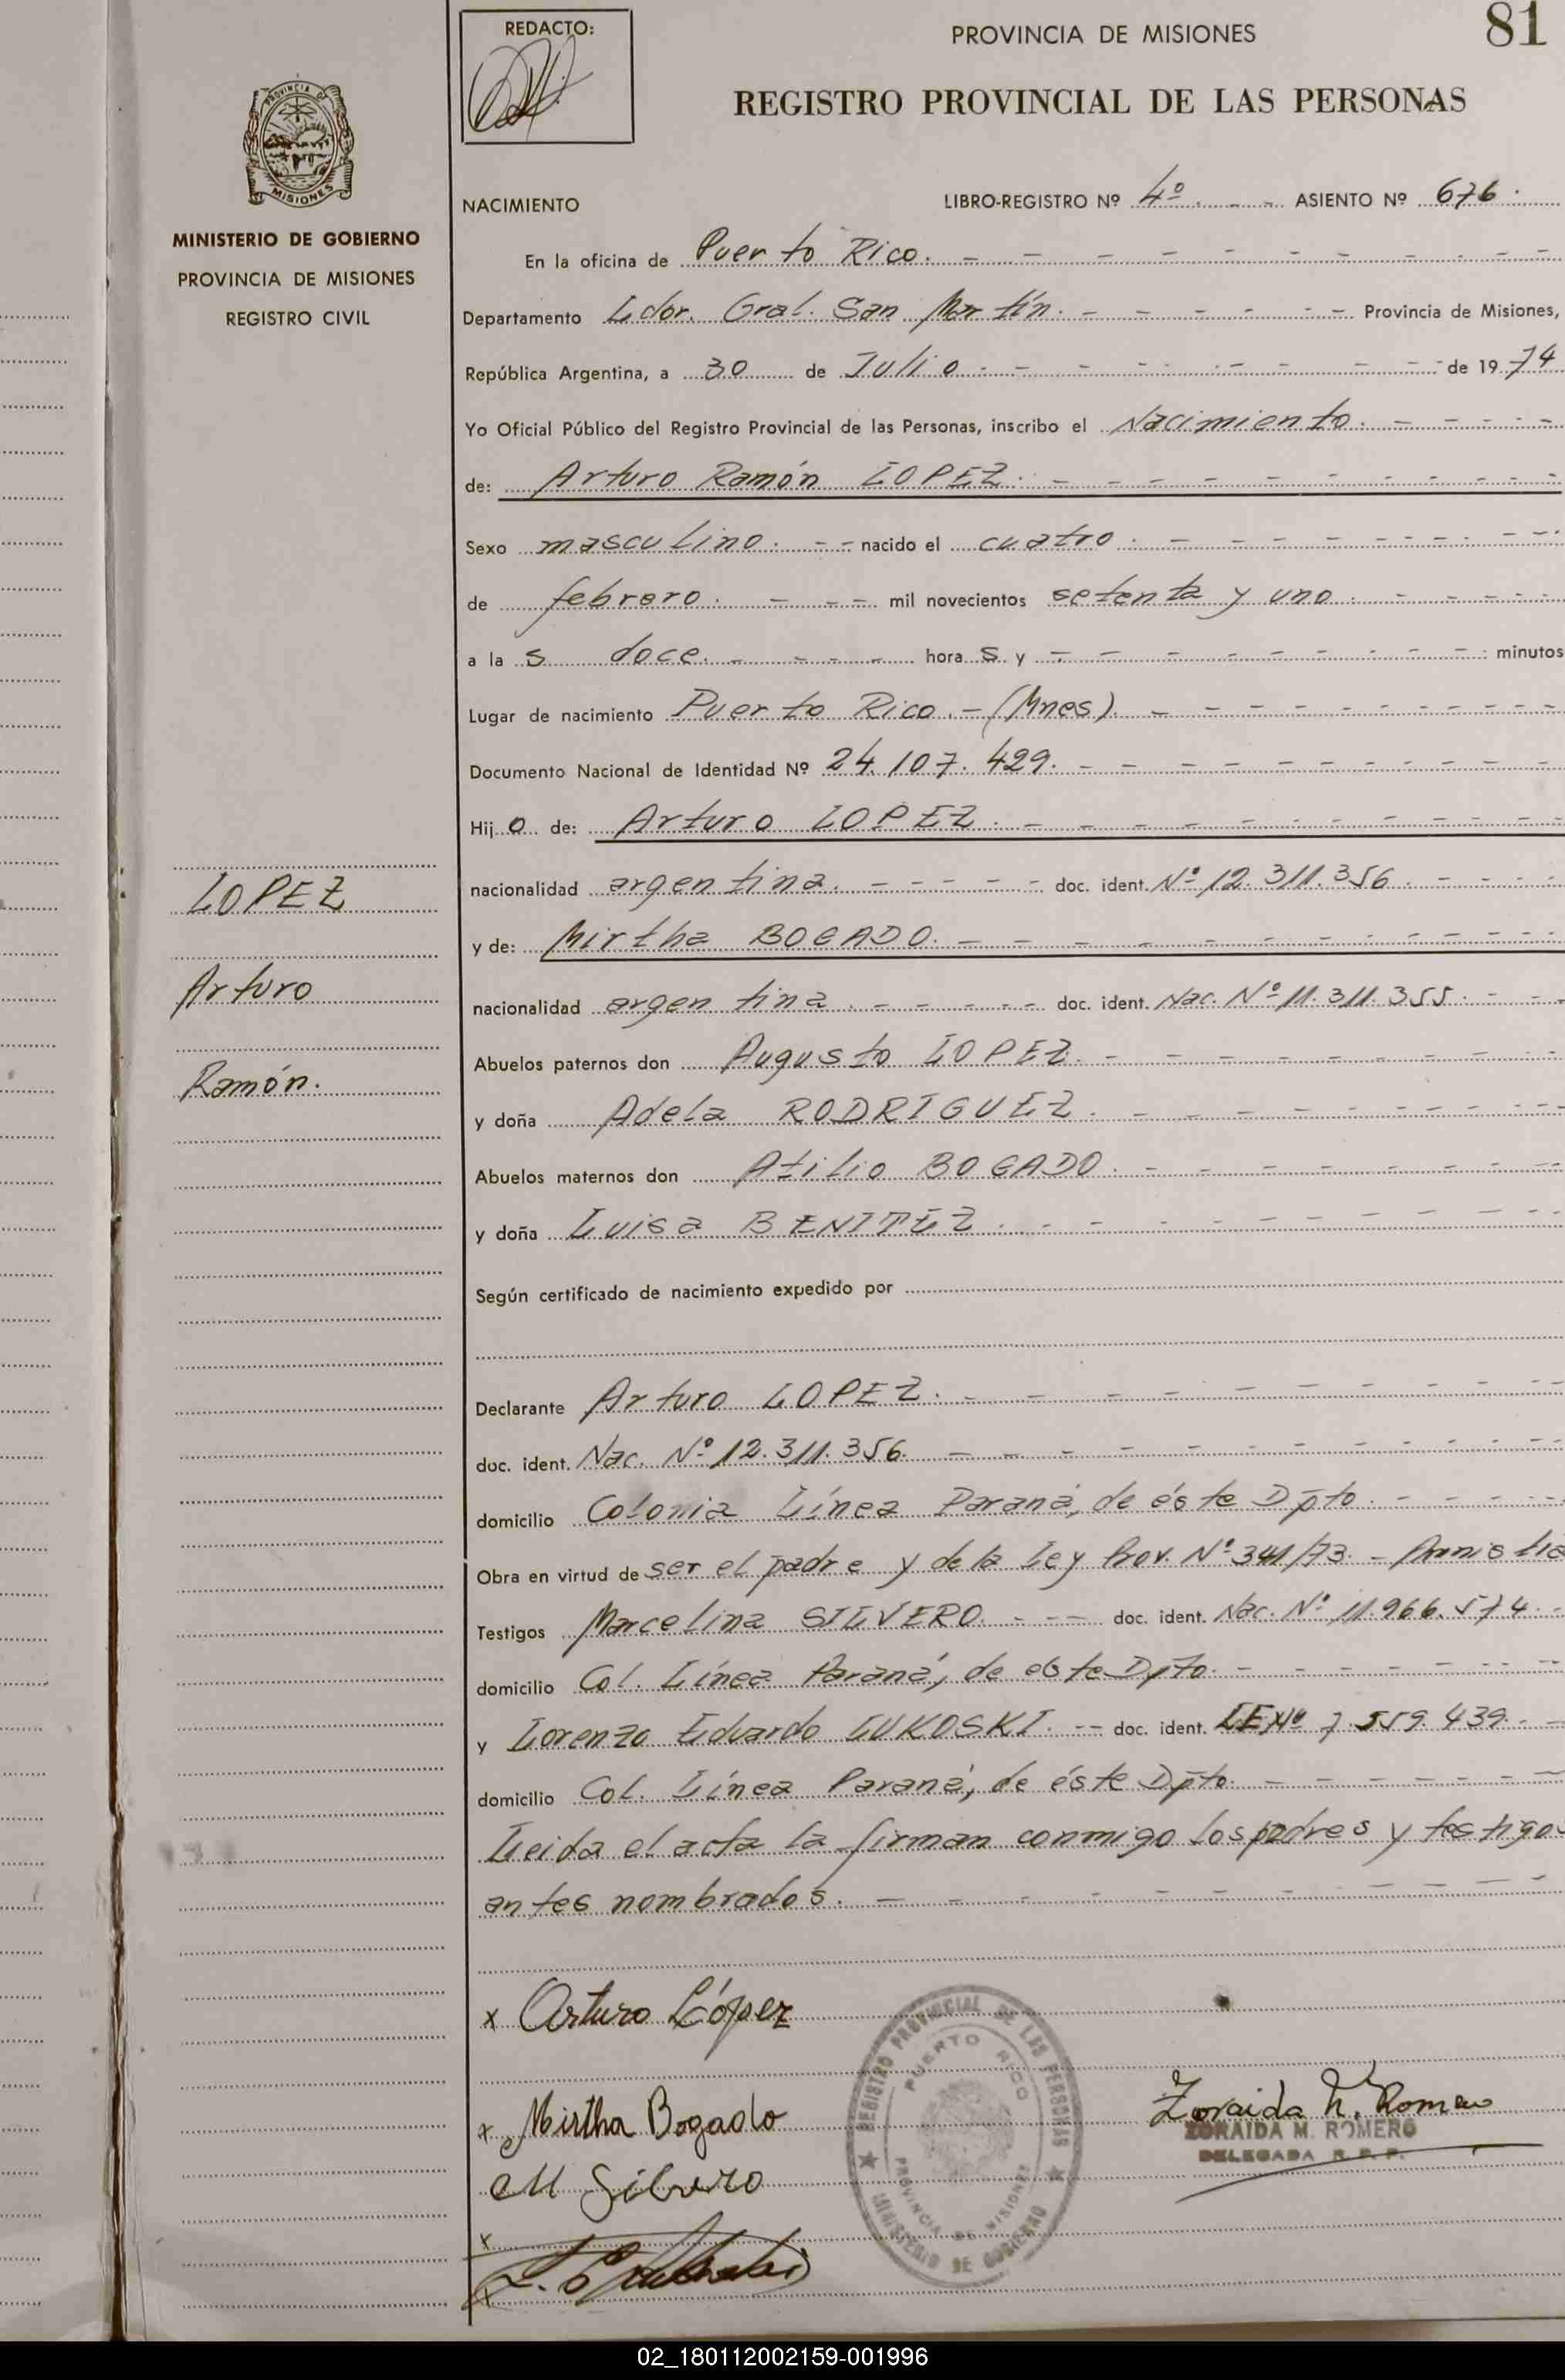 REDACTO:
PROVINCIA DE MISIONES
81
REGISTRO PROVINCIAL DE LAS PERSONAS
PROVINCIA DE
MISIONES
MINISTERIO DE GOBIERNO
PROVINCIA DE MISIONES
REGISTRO CIVIL
NACIMIENTO LIBRO-REGISTRO Nº 4º ASIENTO Nº 676.
En la oficina de Puerto Rico.
Departamento Ldor. Gral. San Martín. Provincia de Misiones,
República Argentina, a 30 de Julio de 1974
Yo Oficial Público del Registro Provincial de las Personas, inscribo el Nacimiento.
de: Arturo Ramón LOPEZ.
Sexo masculino. nacido el cuatro.
de febrero. mil novecientos setenta y uno.
a la s doce. hora s y minutos
Lugar de nacimiento Puerto Rico.-(Mnes).
Documento Nacional de Identidad Nº 24.107.429.
Hij o de: Arturo LOPEZ.
nacionalidad argentina. doc. ident. Nº 12.311.356.
y de: Mirtha BOGADO.
nacionalidad argentina. doc. ident. Nac. Nº 11.311.355.
Abuelos paternos don Augusto LOPEZ.
y doña Adela RODRIGUEZ.
Abuelos maternos don Atilio BOGADO.
y doña Luisa BENITEZ.
Según certificado de nacimiento expedido por
Declarante Arturo LOPEZ.
doc. ident. Nac. Nº 12.311.356.
domicilio Colonia Línea Paraná, de éste Dpto.
Obra en virtud de ser el padre y de la Ley Prov. Nº 341/73. - Amnistia
Testigos Marcelina SILVERO. doc. ident. Nac. Nº 11.966.574.
domicilio Col. Línea Paraná, de este Dpto.
y Lorenzo Eduardo LUKOSKI. doc. ident. LE Nº 7.559.439.
domicilio Col. Línea Paraná, de éste Dpto.
Leida el acta la firman conmigo los padres y testigos
antes nombrados.
LOPEZ
Arturo
Ramón.
x Arturo López
x Mirtha Bogado
M Silvero
x
x
REGISTRO PROVINCIAL DE LAS PERSONAS
PUERTO RICO
PROVINCIA DE MISIONES
MINISTERIO DE GOBIERNO
Zoraida M. Romero
ZORAIDA M. ROMERO
DELEGADA R.P.P.
02_180112002159-001996